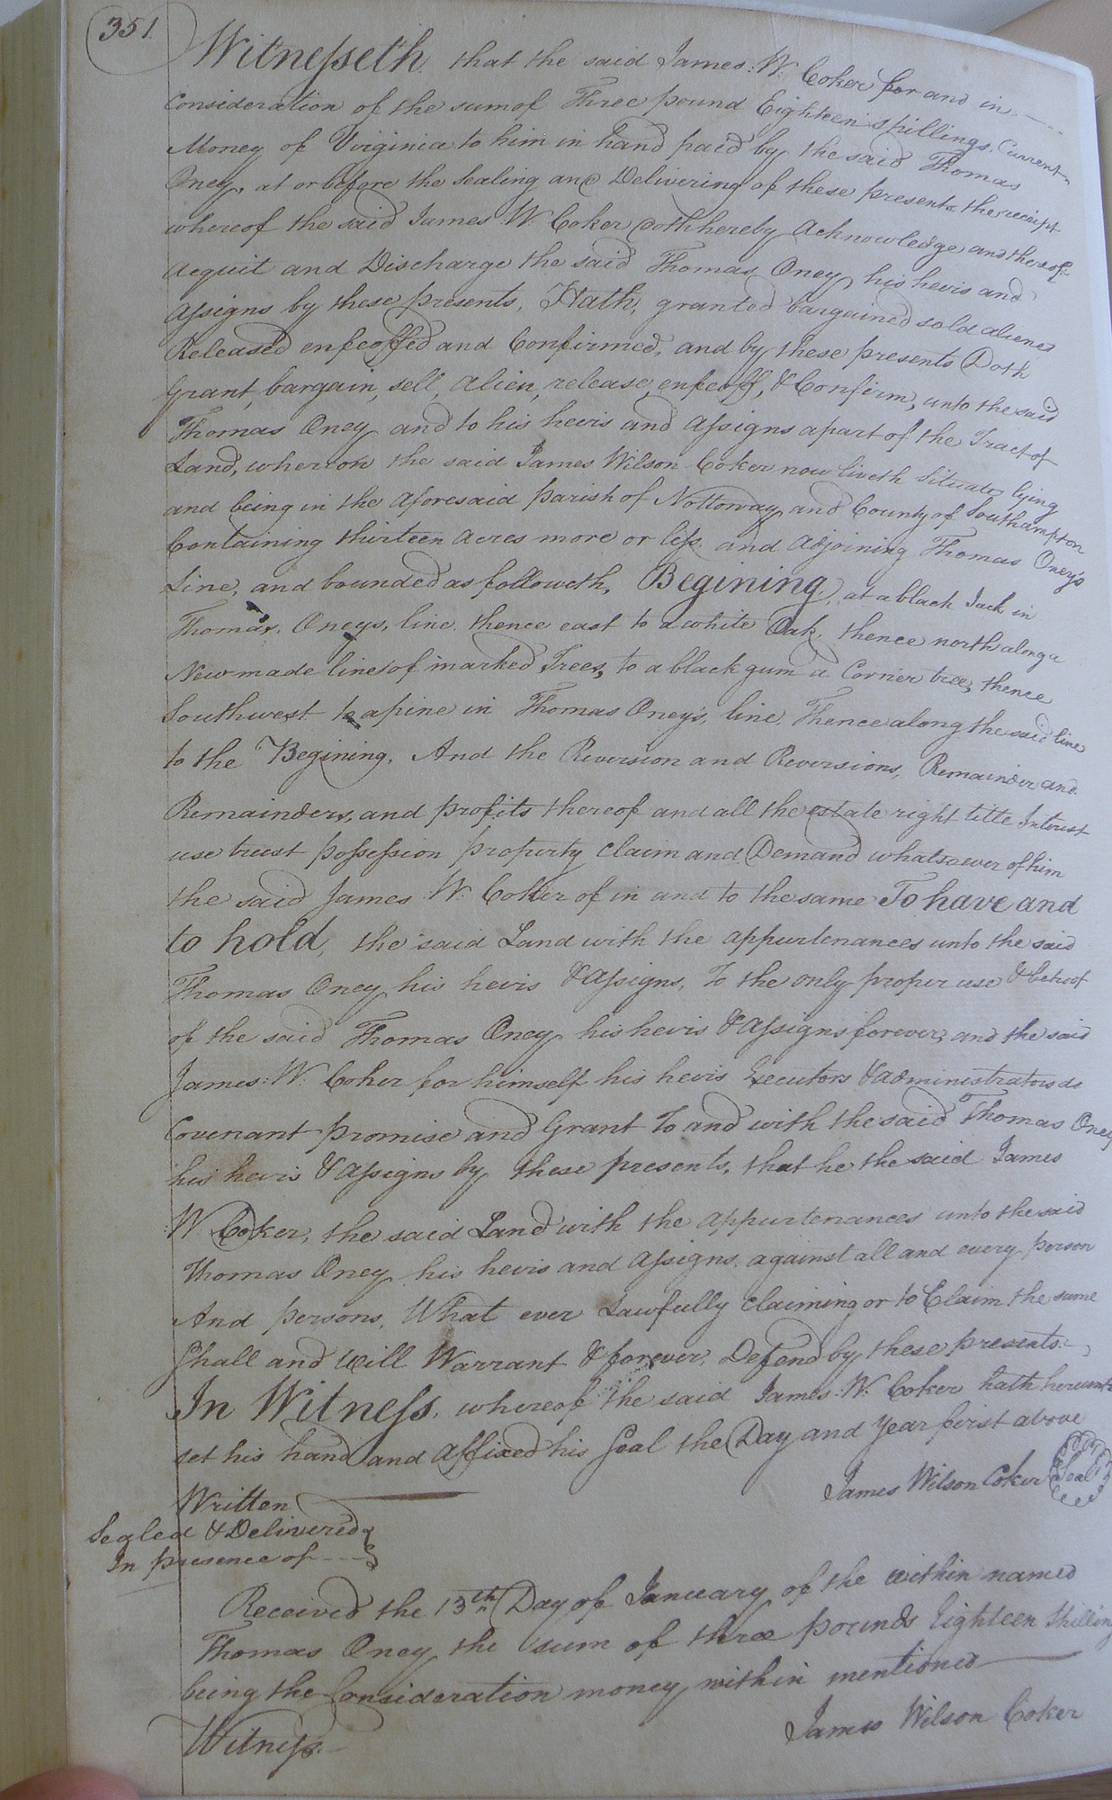 351.
Witnesseth. that the said James: W: Coker for and in
Consideration of the sum of Three pound Eighteen shillings. Current
Money of Virginia to him in hand paid by the said Thomas
Oney, at or before the Sealing and Delivering of these presents the receipt
whereof the said James W. Coker doth hereby Acknowledge, and thereof
acquit and Discharge the said Thomas Oney his heirs and
assigns by these presents, Hath, granted bargained sold aliened
Released enfeoffed and Confirmed, and by these presents Doth
Grant, bargain, sell, alien, release, enfeoff, & Confirm, unto the said
Thomas Oney and to his heirs and assigns a part of the Tract of
Land, whereon the said James Wilson Coker now liveth Situate, lying
and being in the aforesaid parish of Nottoway and County of Southampton
Containing thirteen acres more or less. and adjoining Thomas Oney's
Line, and bounded as followeth, Begining, at a black Jack in
Thomas. Oneys, line. thence east to a white Oak, thence north along a
New made line of marked Trees, to a black gum a Corner tree, thence
Southwest to a pine in Thomas Oney's, line. Thence along the said line
to the Begining. And the Reversion and Reversions, Remainder and
Remainders, and profits thereof and all the estate right title Interest
use trust possession property Claim and Demand whatsoever of him
the said James W. Coker of in and to the same To have and
to hold, the said Land with the appurtenances unto the said
Thomas Oney his heirs & assigns, To the only proper use & behoof
of the said Thomas Oney his heirs & assigns forever, and the said
James: W: Coker for himself his heirs Executors & administrators do
Covenant promise and Grant To and with the said Thomas Oney
his heirs & assigns by these presents, that he the said James
W Coker, the said Land with the appurtenances unto the said
Thomas Oney his heirs and assigns. against all and every person
And persons, What ever Lawfully Claiming or to Claim the same
Shall and Will Warrant & forever, Defend by these presents.
In Witness, whereof the said James: W: Coker hath hereunto
set his hand and affixed his Seal the Day and Year first above
Written
James Wilson Coker Seal
Sealed & Delivered
In presence of
Received the 13th Day of January of the within named
Thomas Oney the sum of three pounds Eighteen Shilling
being the Consideration money within mentioned
James Wilson Coker
Witness.